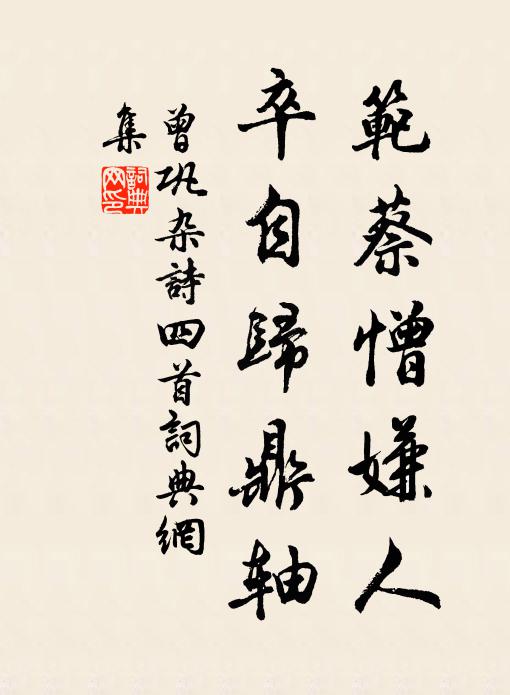 範蔡憎嫌人
卒自歸鼎軸
曾巩杂詩四首詞典網
集
詞典
网印